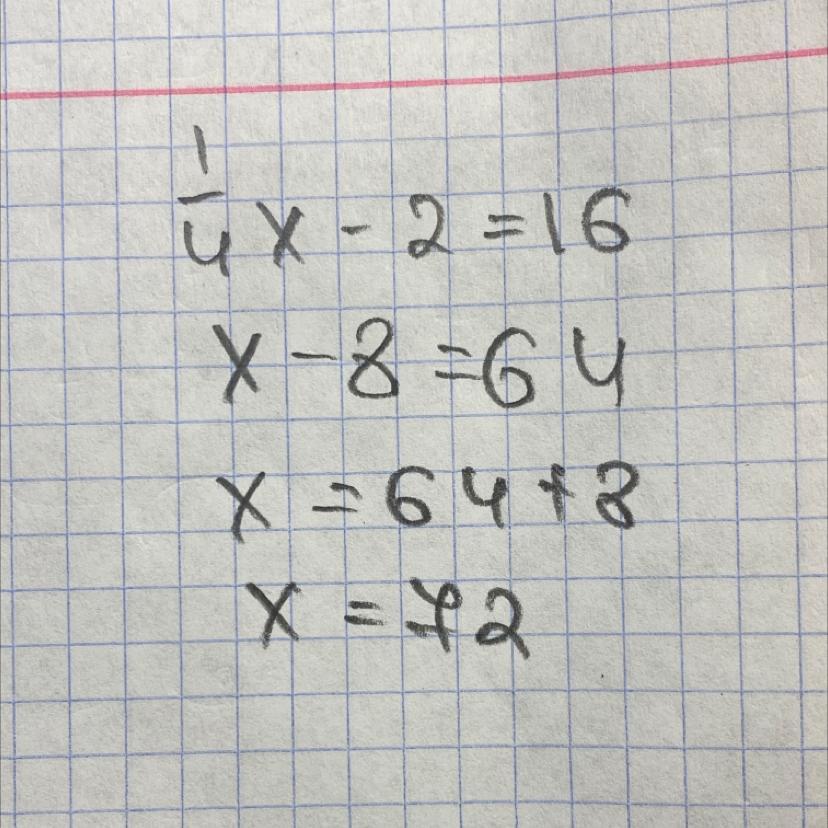 1/4 x - 2 = 16
x - 8 = 64
x = 64 + 8
x = 72